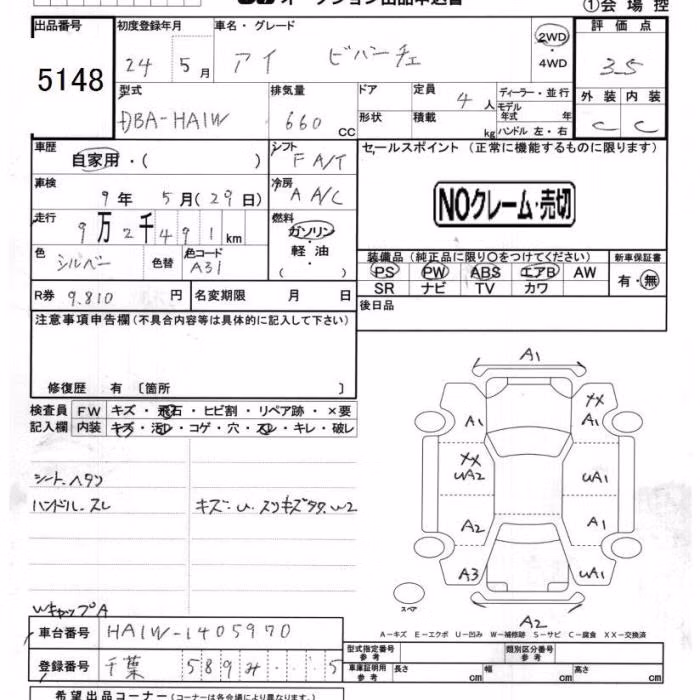 オークション出品申込書
①会場控
出品番号 初度登録年月 車名・グレード 評価点
5148 24年 5月 アイ ビバーチェ 2WD・4WD 3.5
型式 排気量 ドア 定員 4人 ディーラー・並行
モデル年式 年式 外装 内装
DBA-HA1W 660 CC 形状 積載 kg ハンドル 左・右 C C
車歴 シフト セールスポイント (正常に機能するものに限ります)
自家用・( ) F A/T
車検 9年 5月(29日) 冷房 A A/C
NOクレーム・売切
走行 9万2千491km 燃料 ガソリン・軽油・( )
色 シルバー 色替 色コード A31
装備品(純正品に限り○をつけてください) 新車保証書
PS PW ABS エアB AW 有・無
SR ナビ TV カワ
R券 9.810円 名変期限 月 日 後日品
注意事項申告欄(不具合内容等は具体的に記入して下さい)
修復歴 有〔箇所 〕
検査員記入欄
FW キズ・飛石・ヒビ割・リペア跡・×要
内装 キズ・汚レ・コゲ・穴・スレ・キレ・破レ
シート.ヘタリ
ハンドル.スレ
WキャップA
A1
A1 XX A1
XX WA2 WA1
A2 A1
A3 WA1
スペア
A2
A-キズ E-エクボ U-凹み W-補修跡 S-サビ C-腐食 XX-交換済
車台番号 HA1W-1405970
登録番号 千葉 589 み 5
型式指定番号 参考 類別区分番号 参考
車庫証明用 参考 長さ cm 幅 cm 高さ cm
希望出品コーナー(コーナーは各会場により異なります)